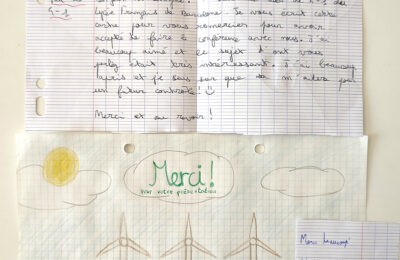 lycée français de Barcelone. Je vous écrit cette
carte pour vous remercier pour avoir
accepté de faire la conférence avec nous. J'ai
beaucoup aimé et le sujet dont vous
parlez était très intéressant. J'ai beaucoup
appris et je sais que m'aidera pour
un futur contrôle! ☺
Merci et au revoir!
Merci!
pour votre présentation
Merci beaucoup